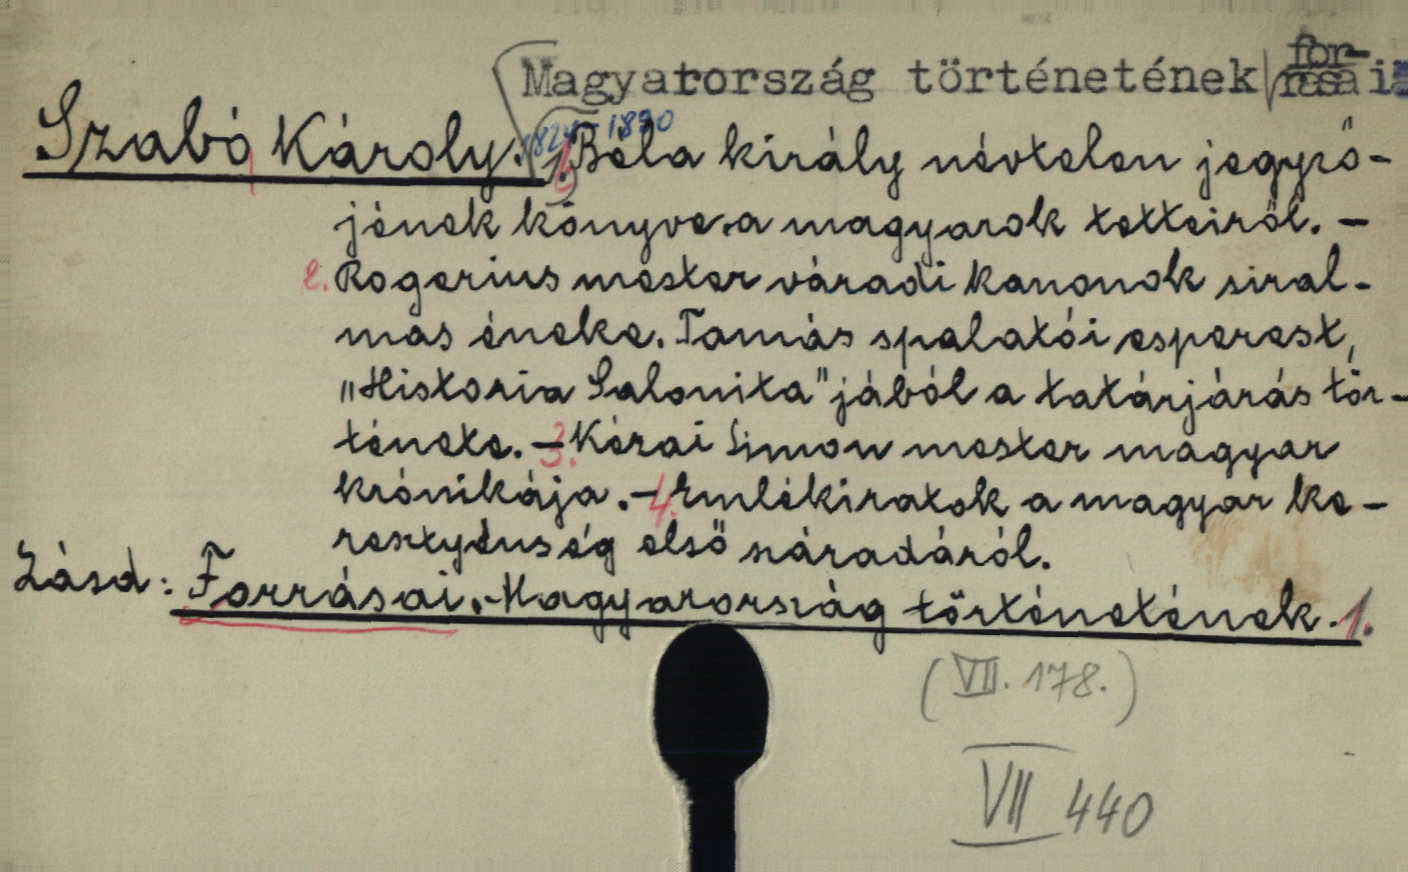 Magyarország történetének forrásai
1824-1890
Szabó Károly. 1. Béla király névtelen jegyző-
jének könyve a magyarok tetteiről. –
2. Rogerius mester váradi kanonok siral-
mas éneke. Tamás spalatói esperest,
"Historia Salonita"jából a tatárjárás tör-
ténete. – 3. Kézai Simon mester magyar
krónikája. – 4. Emlékiratok a magyar ke-
resztyénség első száradáról.
Lásd: Forrásai. Magyarország történetének. 1.
(VII. 178.)
VII 440